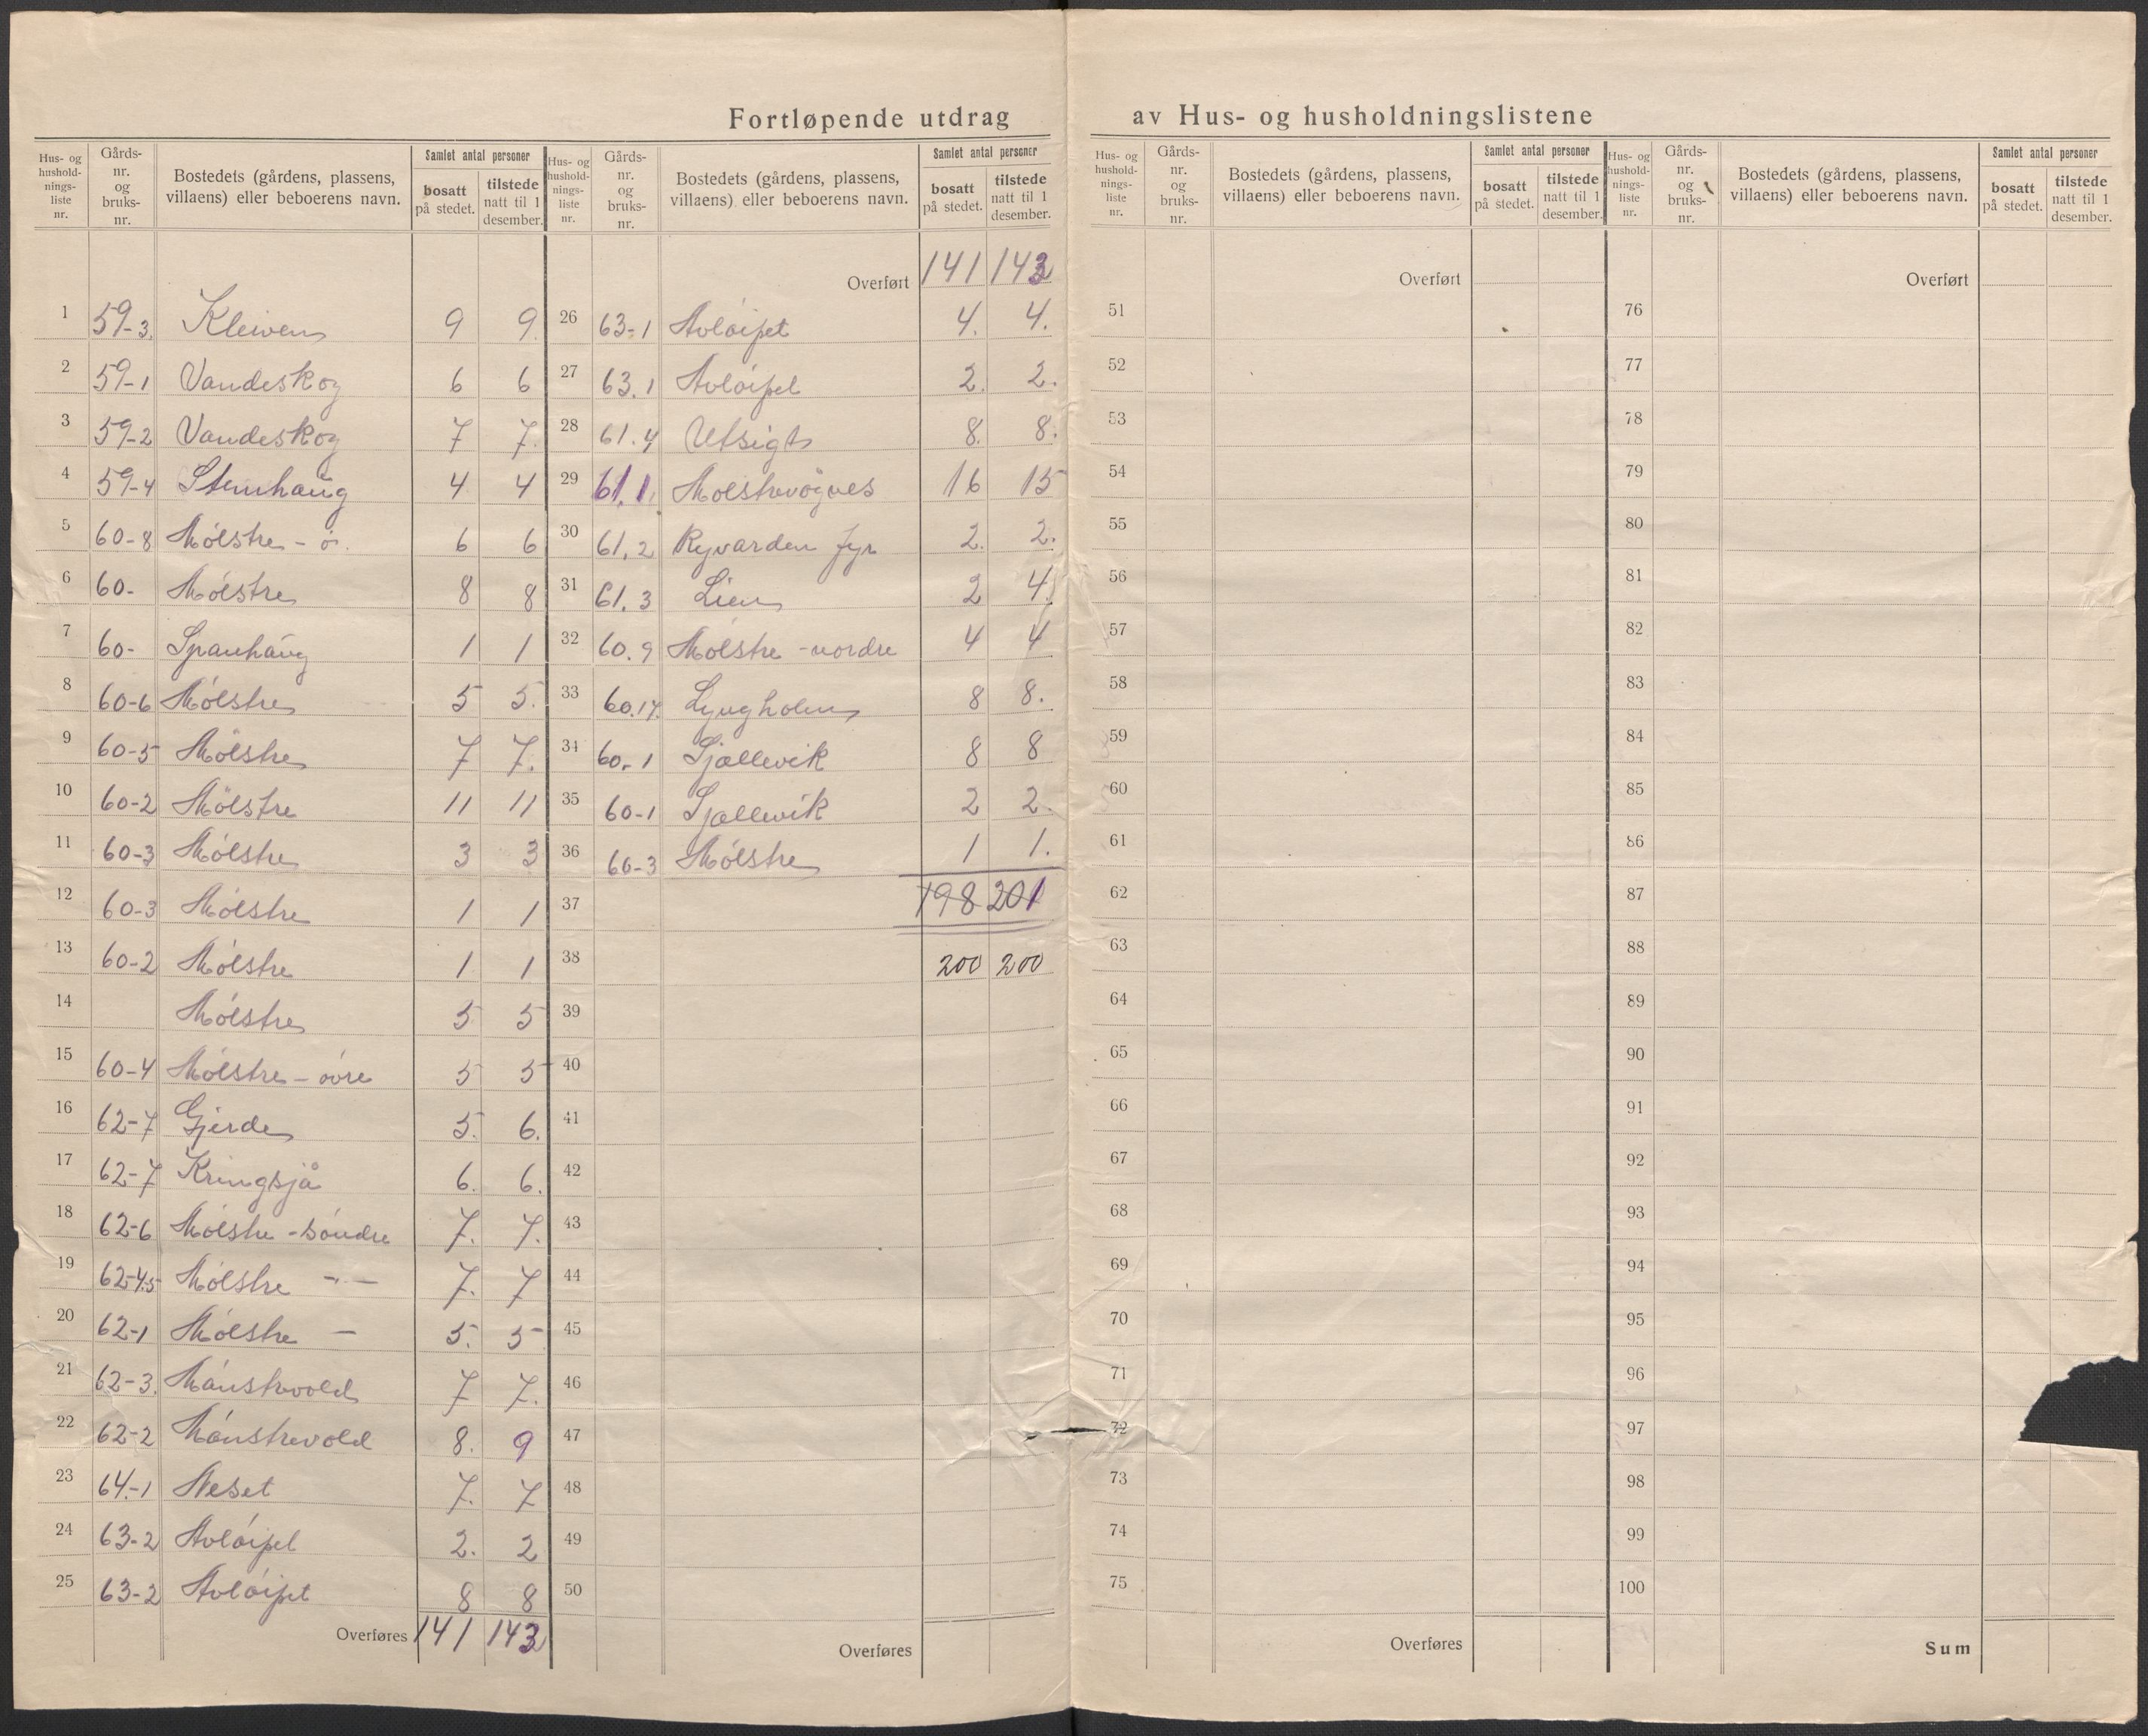 Fortløpende utdrag av Hus- og husholdningslistene
Hus- og hushold-nings-liste nr. | Gårds-nr. og bruks-nr. | Bostedets (gårdens, plassens, villaens) eller beboerens navn. | Samlet antal personer | bosatt på stedet. | tilstede natt til 1 desember.
1 59-3. Kleiven 9 9.
2 59-1 Vandeskog 6 6
3 59-2 Vandeskog 7 7.
4 59-4 Stenhaug 4 4
5 60-8 Mölstre - ö. 6 6
6 60- Mölstre 8 8
7 60- Spanhaug 1 1
8 60-6 Mölstre 5 5.
9 60-5 Mölstre 7 7.
10 60-2 Mölstre 11 11
11 60-3 Mölstre 3 3
12 60-3 Mölstre 1 1
13 60-2 Mölstre 1 1
14 Mölstre 5 5
15 60-4 Mölstre - övre 5 5
16 62-7 Gjerde 5. 6.
17 62-7 Kringsjå 6. 6.
18 62-6 Mölstre - söndre 7. 7.
19 62-4.5 Mölstre -"- 7. 7
20 62-1 Mölstre - 5. 5
21 62-3. 7 7.
22 62-2 8. 9
23 64.-1 Neset 7. 7
24 63-2 Avlöipet 2. 2
25 63-2 Avlöipet 8 8
Overføres 141 143
Hus- og hushold-nings-liste nr. | Gårds-nr. og bruks-nr. | Bostedets (gårdens, plassens, villaens) eller beboerens navn. | Samlet antal personer | bosatt på stedet. | tilstede natt til 1 desember.
Overført 141 143
26 63-1 Avlöipet 4. 4.
27 63.1 Avlöipet 2. 2.
28 61.4 Utsigt 8. 8.
29 61.1. Molstrevögnes 16 15
30 61.2 Ryvarden fyr 2. 2.
31 61.3 Lien 2 4.
32 60.9 Mölstre - nordre 4 4
33 60.17. Lyngholm 8 8.
34 60.-1 Sjællevik 8 8
35 60-1 Sjællevik 2 2.
36 60-3 Mölstre 1 1.
37 198 201
38 200 200
39
40
41
42
43
44
45
46
47
48
49
50
Overføres
Hus- og hushold-nings-liste nr. | Gårds-nr. og bruks-nr. | Bostedets (gårdens, plassens, villaens) eller beboerens navn. | Samlet antal personer | bosatt på stedet. | tilstede natt til 1 desember.
Overført
51
52
53
54
55
56
57
58
59
60
61
62
63
64
65
66
67
68
69
70
71
72
73
74
75
Overføres
Hus- og hushold-nings-liste nr. | Gårds-nr. og bruks-nr. | Bostedets (gårdens, plassens, villaens) eller beboerens navn. | Samlet antal personer | bosatt på stedet. | tilstede natt til 1 desember.
Overført
76
77
78
79
80
81
82
83
84
85
86
87
88
89
90
91
92
93
94
95
96
97
98
99
100
Sum